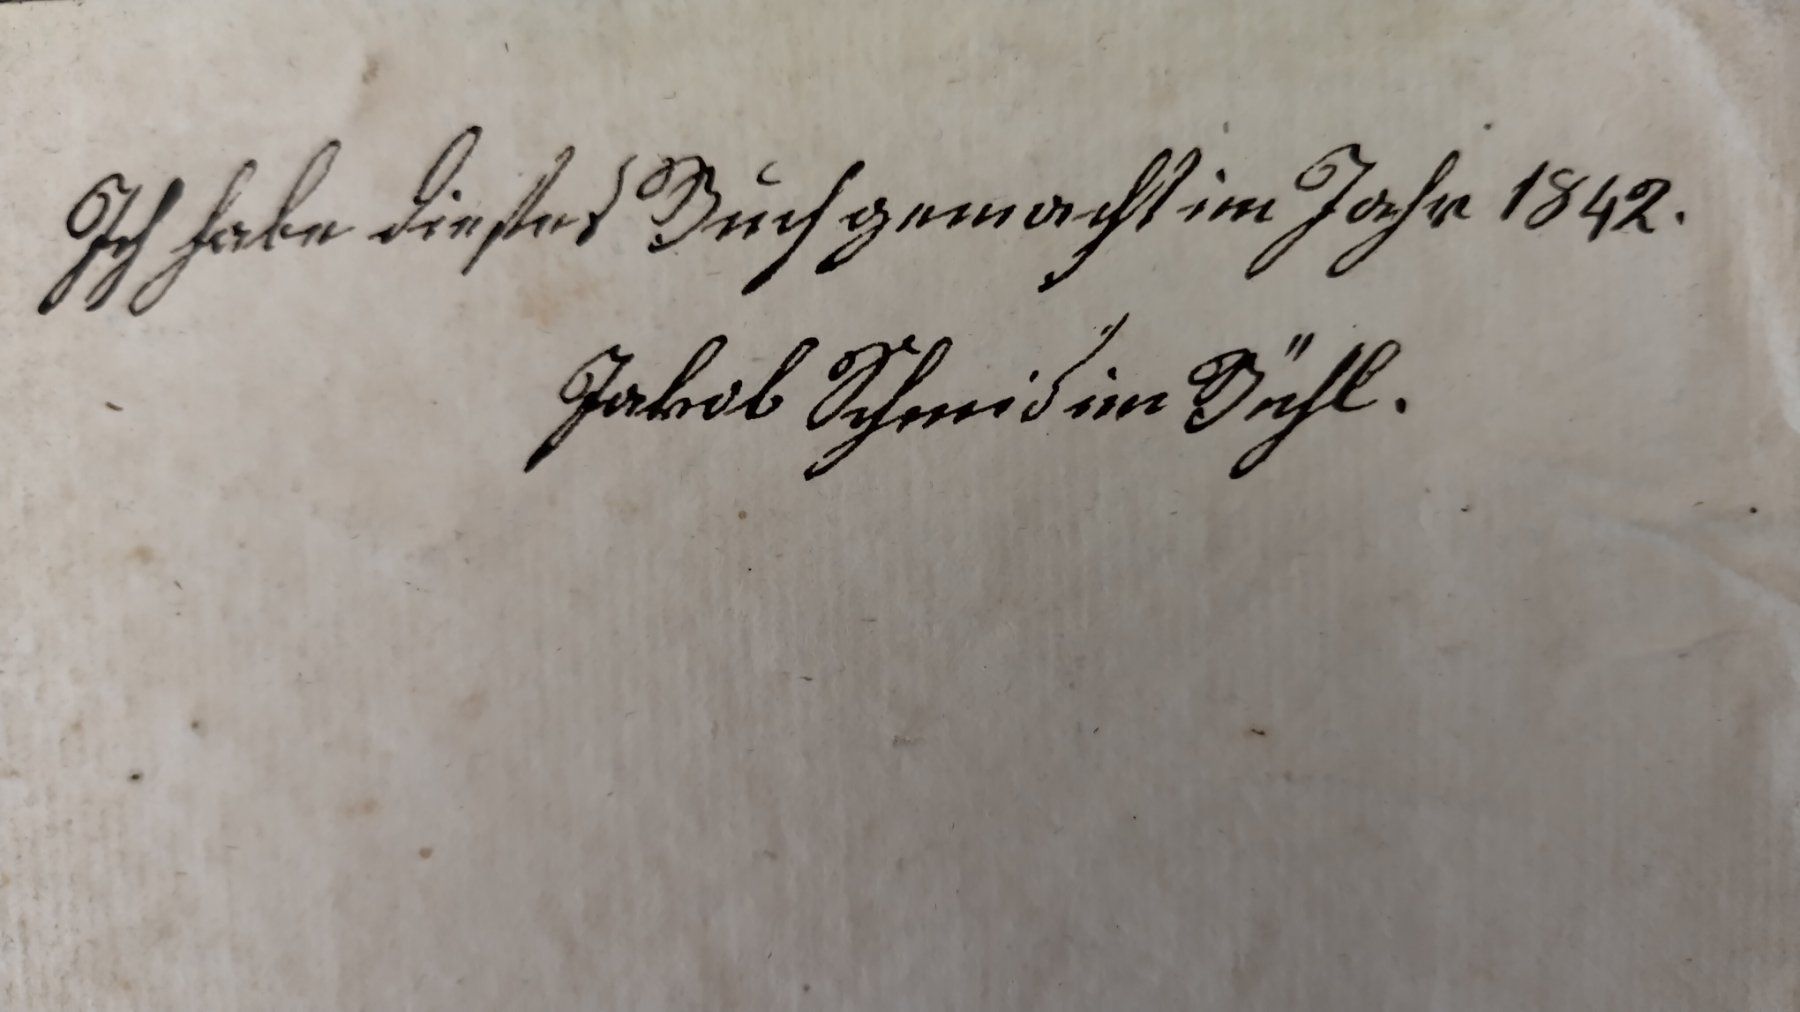 Ich habe dieses Buch gemacht im Jahr 1842.
Jakob Schmid im Bühl.